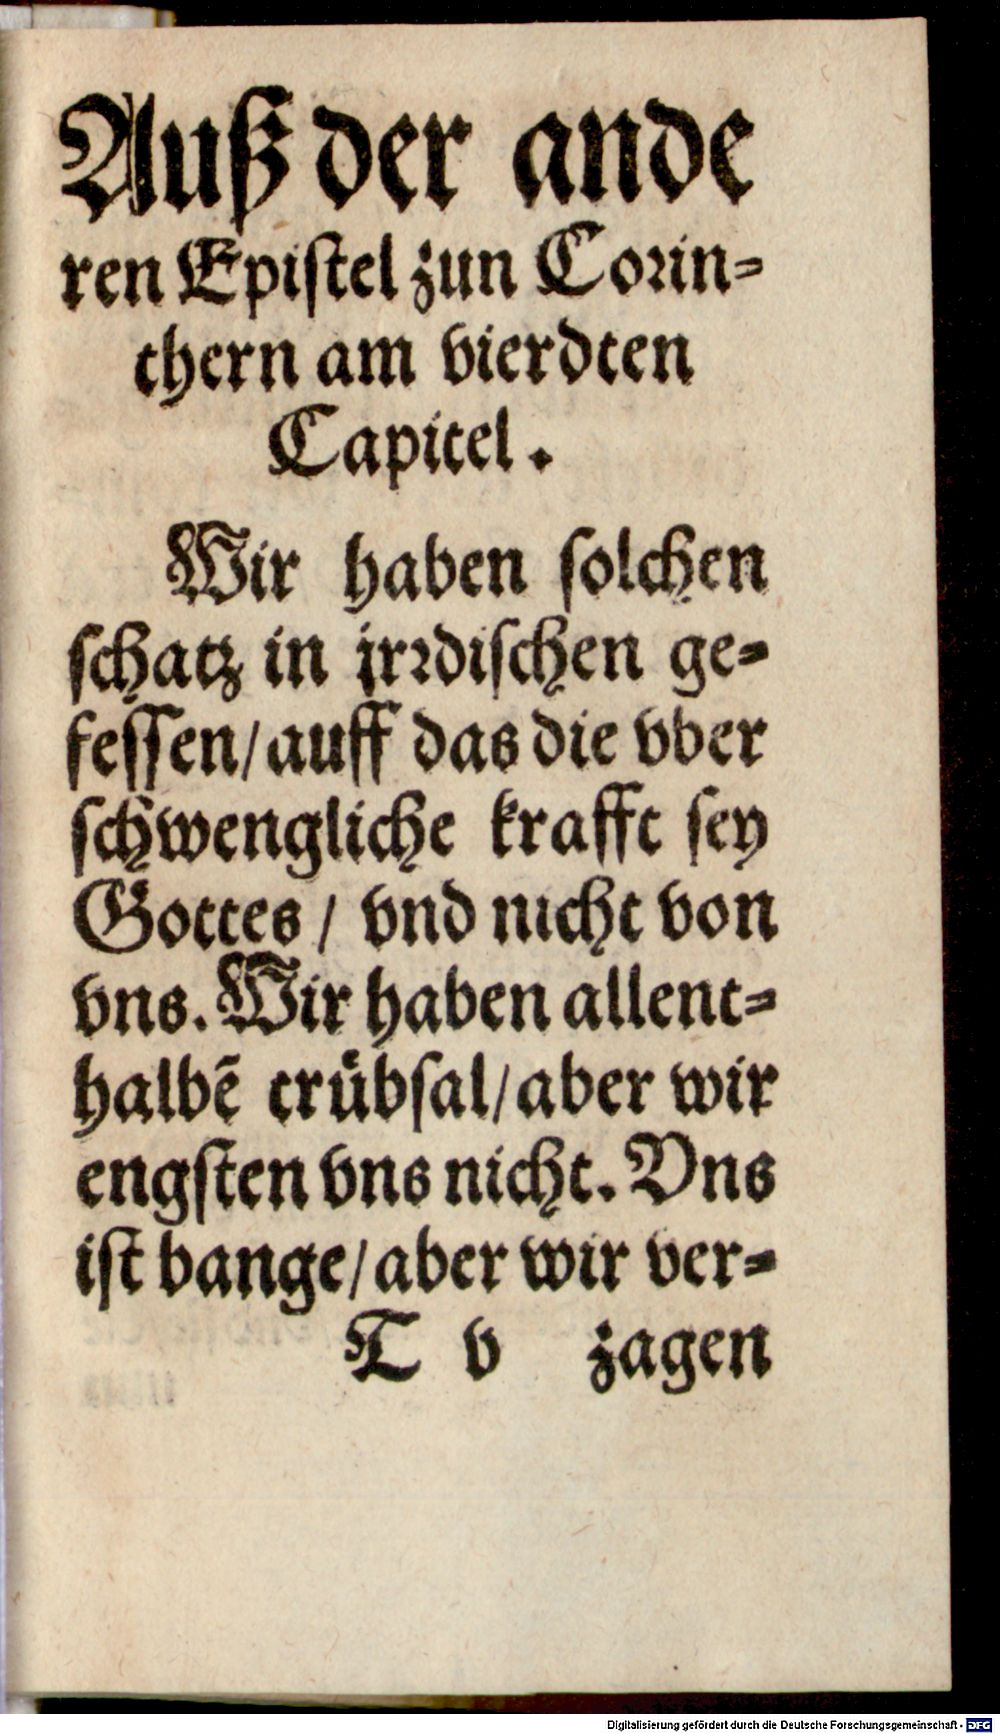 Auß der ande
ren Epistel zun Corin-
thern am vierdten
Capitel.
Wir haben solchen
schatz in jrrdischen ge-
fessen/auff das die vber
schwengliche krafft sey
Gottes/ vnd nicht von
vns. Wir haben allent-
halbẽ trübsal/aber wir
engsten vns nicht. Vns
ist bange/aber wir ver-
T v zagen
Digitalisierung gefördert durch die Deutsche Forschungsgemeinschaft - DFG